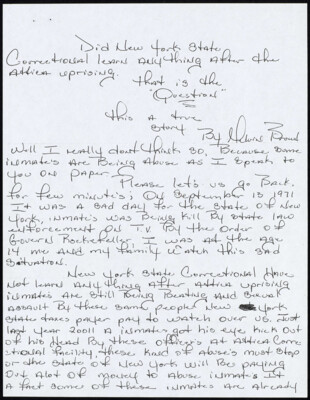 Did New York State
Correctional learn Anything After the
Attica uprising.
that is the
"Question"
this a true
story
By
Well I really don't think so, Because some
inmates Are Being Abuse As I Speak to
you on paper.
Please let's us go Back.
for few minutes; On September 13 1971
It was a bad day for the State of New
York, inmates was Being Kill By State law
enforcement on TV By the Order of
Govern Rockefeller, I was at the age
14 me And my family watch this sad
situation.
New York State Correctional Have
Not learn Any thing After Attica uprising
inmates Are Still Being Beating And Sexual
Assault By these same people New York
State taxes payer pay to watch over us, Just
last year 2011 A inmates got his eye Kick Out
of his Head By these officers at Attica Corre-
ctional facility, these kind of Abuse's must stop
or the State of New York will Be paying
Out Alot of money to Abuse inmates
A fact some of these inmates Are Already